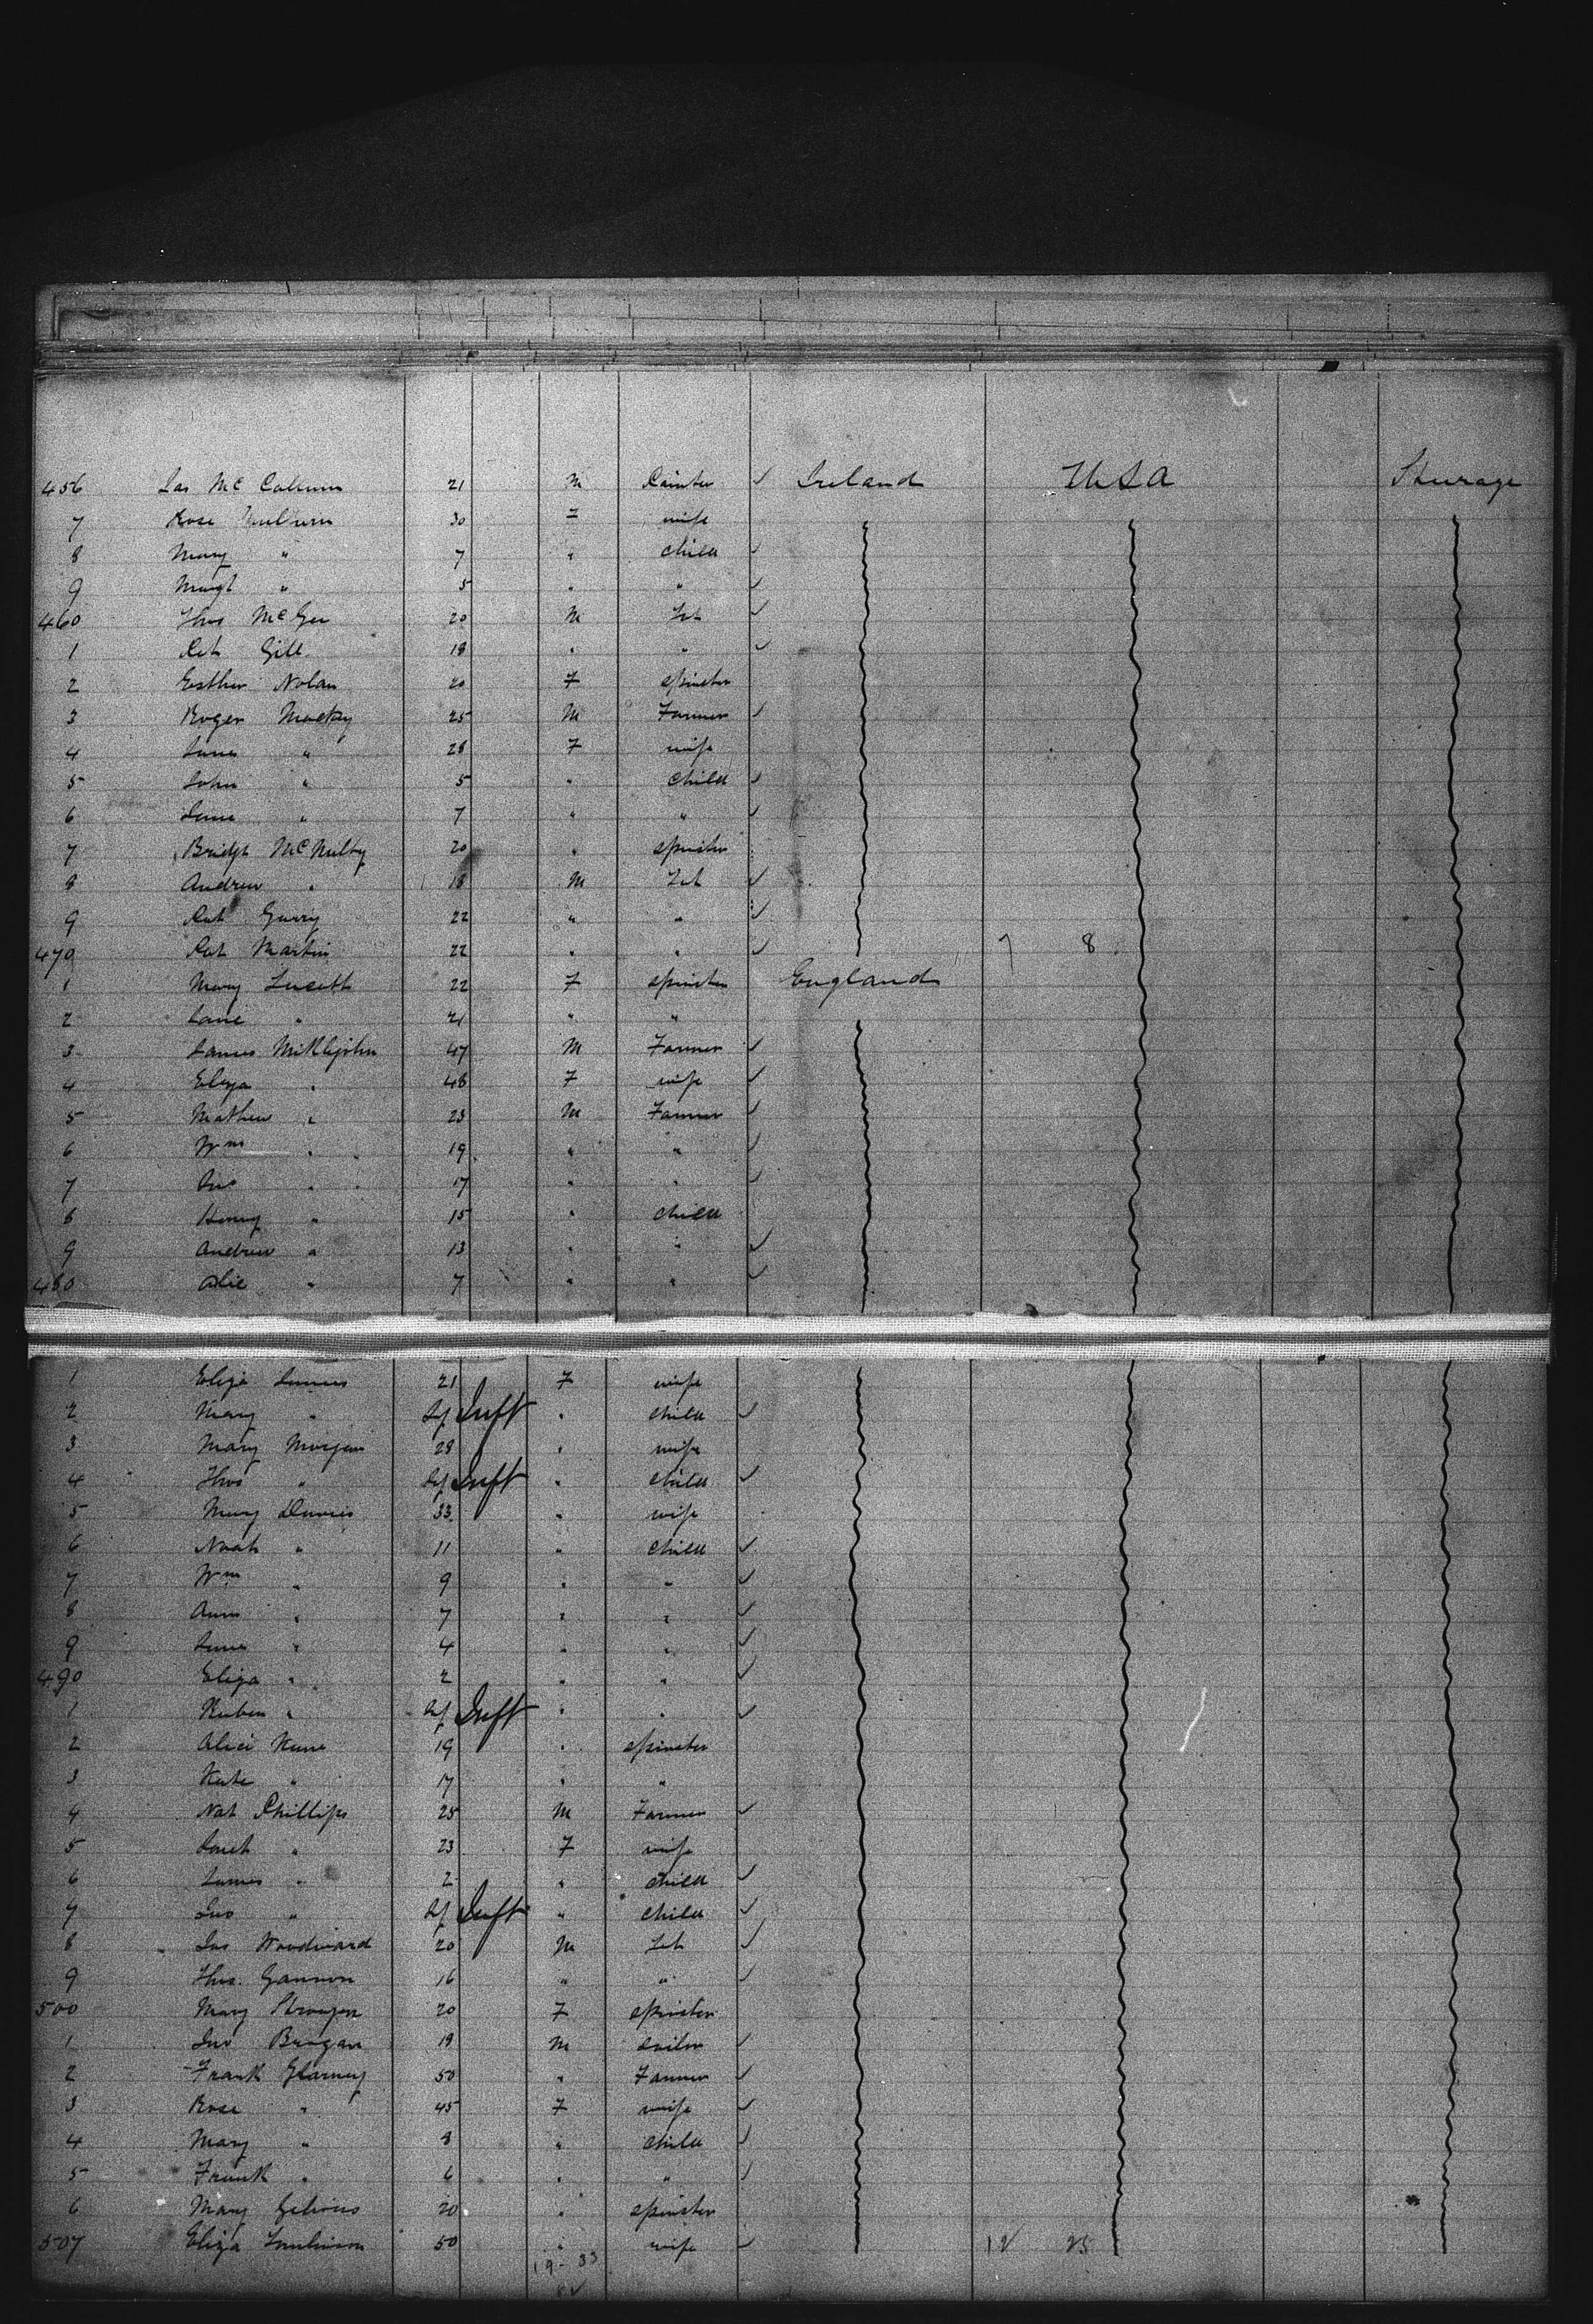 456 Jas McCalmin 21 M Painter ✓ Ireland USA Steerage
7 Rose 30 F wife
8 Mary " 7 " child ✓
9 Margt " 5 " " ✓
460 Thos McGee 20 M Lab ✓
1 Pat Gill 18 " " ✓
2 Esther Nolan 20 F spinster
3 Roger Mackey 25 M Farmer ✓
4 Jane " 28 F wife
5 John " 5 " child ✓
6 Jane " 7 " " ✓
7 Bridgt McNulty 20 " spinster
8 Andrew " 18 M Lab ✓
9 Pat Garry 22 " " ✓
470 Pat Martin 22 " " ✓ 7 8
1 Mary 22 F spinster England
2 Jane " 21 " "
3 James Miklejohn 47 M Farmer ✓
4 Eliza " 46 F wife ✓
5 Mathew " 23 M Farmer ✓
6 Wm " 19 " " ✓
7 Jno " 17 " " ✓
8 Henry " 15 " child
9 Andrew " 13 " " ✓
480 Alie " 7 " " ✓
1 Eliza James 21 F wife
2 Mary " Inf Inft " child ✓
3 Mary Morgan 28 " wife
4 Thos " Inf Inft " child ✓
5 Mary Davies 33 " wife
6 Noah " 11 " child ✓
7 Wm " 9 " " ✓
8 Ann " 7 " " ✓
9 James " 4 " " ✓
490 Eliza " 2 " " ✓
1 Reuben " Inf Inft " " ✓
2 Alice Kane 19 " spinster
3 Kate " 17 " "
4 Nat Phillips 25 M Farmer ✓
5 Janet " 23 F wife
6 James " 2 " child ✓
7 Jno " Inf Inft " child ✓
8 Jas Woodward 20 M Lab ✓
9 Thos. Gannon 16 " " ✓
500 Mary 20 F spinster
1 Jno Brogan 19 M sailor ✓
2 Frank Glarney 50 " Farmer ✓
3 Rose " 45 F wife ✓
4 Mary " 8 " child ✓
5 Frank " 6 " " ✓
6 Mary 20 " spinster
507 Eliza Tomlinson 50 " wife ✓ 12 25
19-33